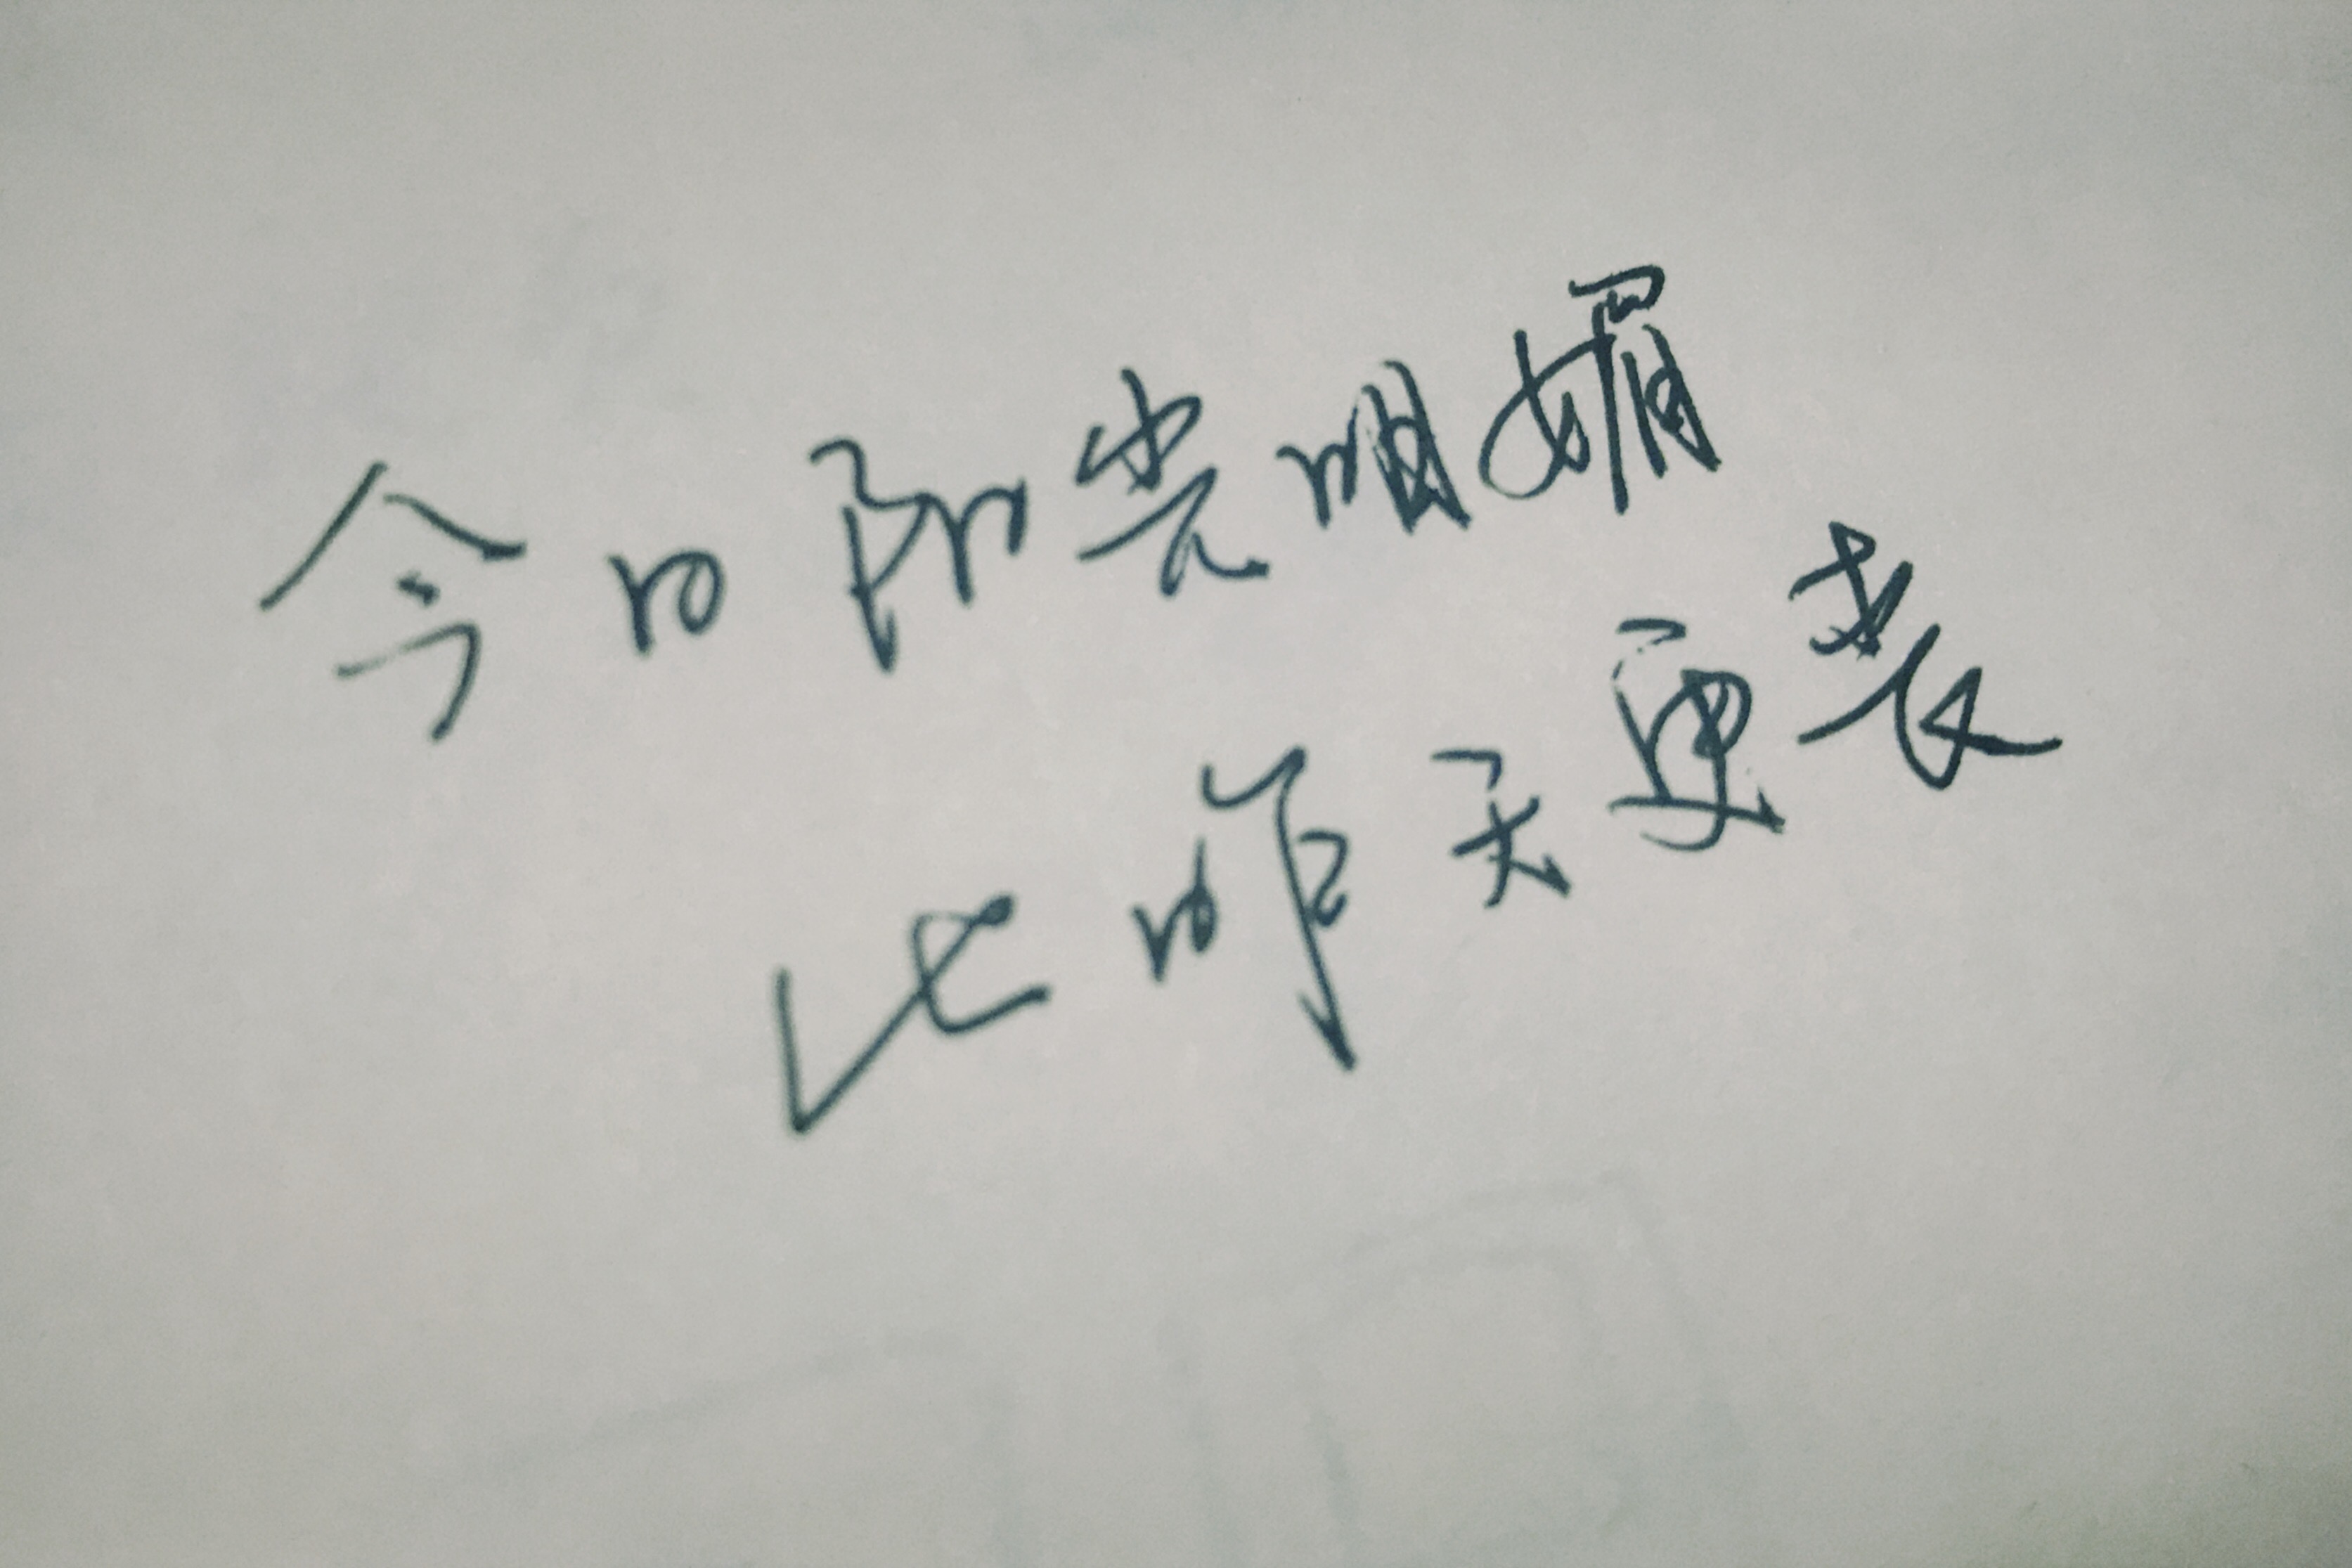 今日阳光明媚
比昨天更